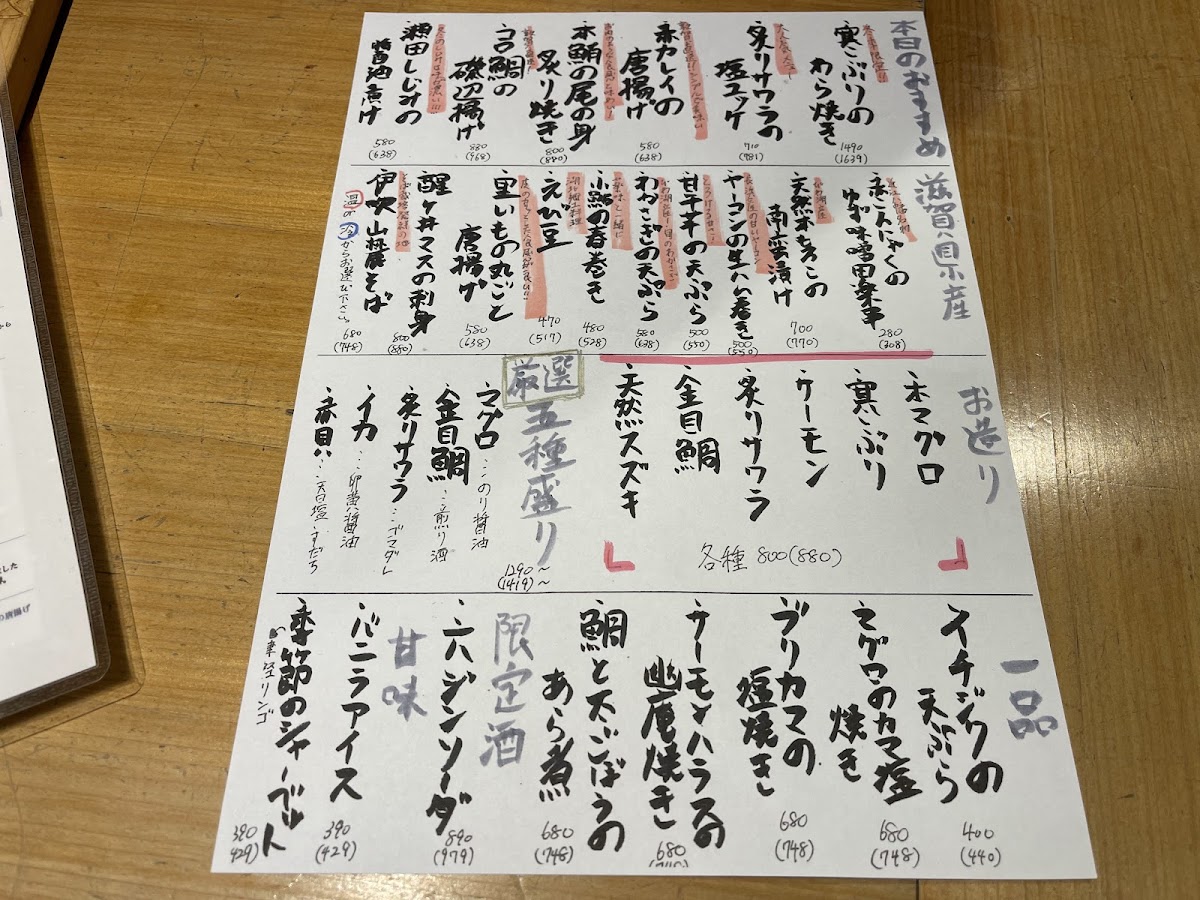 本日のおすすめ
寒ぶりの
わら焼き
1490
(1639)
大人気メニュー
炙りサワラの
塩ユッケ
710
(781)
赤カレイの
唐揚げ
580
(638)
本鮪の尾の身
炙り焼き
800
(880)
コロ鯛の
磯辺揚げ
880
(968)
瀬田しじみの
醤油煮け
580
(638)
滋賀県産
赤こんにゃくの
ゆず味噌田楽串
280
(308)
天然本もろこの
南蛮漬け
700
(770)
ヤーコンの生ハム巻き
500
(550)
とろける甘さ
甘干芋の天ぷら
500
(550)
わかさぎの天ぷら
580
(638)
小鮎の春巻き
480
(528)
湖北郷土料理
えび豆
470
(517)
里いもの丸ごと
唐揚げ
580
(638)
醒ヶ井マスの刺身
800
(880)
そば栽培発祥の地
伊吹山麓そば
温か冷からお選び下さい。
680
(748)
お造り
本マグロ
寒ぶり
サーモン
炙りサワラ
金目鯛
天然スズキ
各種 800(880)
厳選
五種盛り
マグロ…のり醤油
金目鯛…煎り酒
炙りサワラ…ゴマダレ
イカ…卵黄醤油
赤貝…天日塩・すだち
1290〜
(1419)〜
一品
イチジクの
天ぷら
400
(440)
マグロのカマ塩
焼き
680
(748)
ブリカマの
塩焼き
680
(748)
サーモンハラスの
幽庵焼き
680
鯛と大ごぼうの
あら煮
680
(748)
限定酒
六ジンソーダ
890
(979)
甘味
バニラアイス
390
(429)
季節のシャーベット
津軽リンゴ
390
(429)